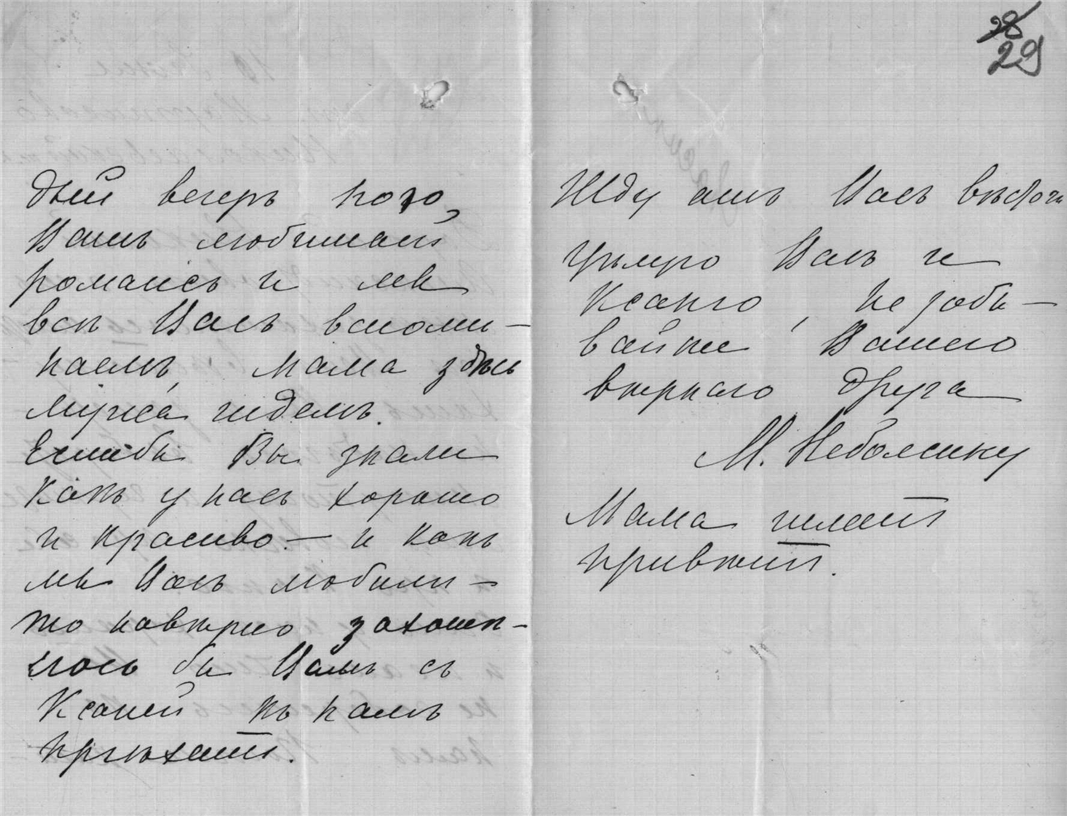 29
дый вечеръ пою
Вашъ любимый
романсъ и мы
всѣ Васъ вспоми-
наемъ, мама здѣсь
мужа ждемъ.
Еслибы Вы знали
какъ у насъ хорошо
и красиво — и какъ
мы Васъ любили —
то навѣрно захотѣ-
лось бы Вамъ съ
Ксаней къ намъ
пріѣхать.
Жду Васъ
Цѣлую Васъ и
Ксаню, не забы-
вайте Вашего
вѣрнаго друга
М. Неболсину
Мама шлетъ
привѣтъ.